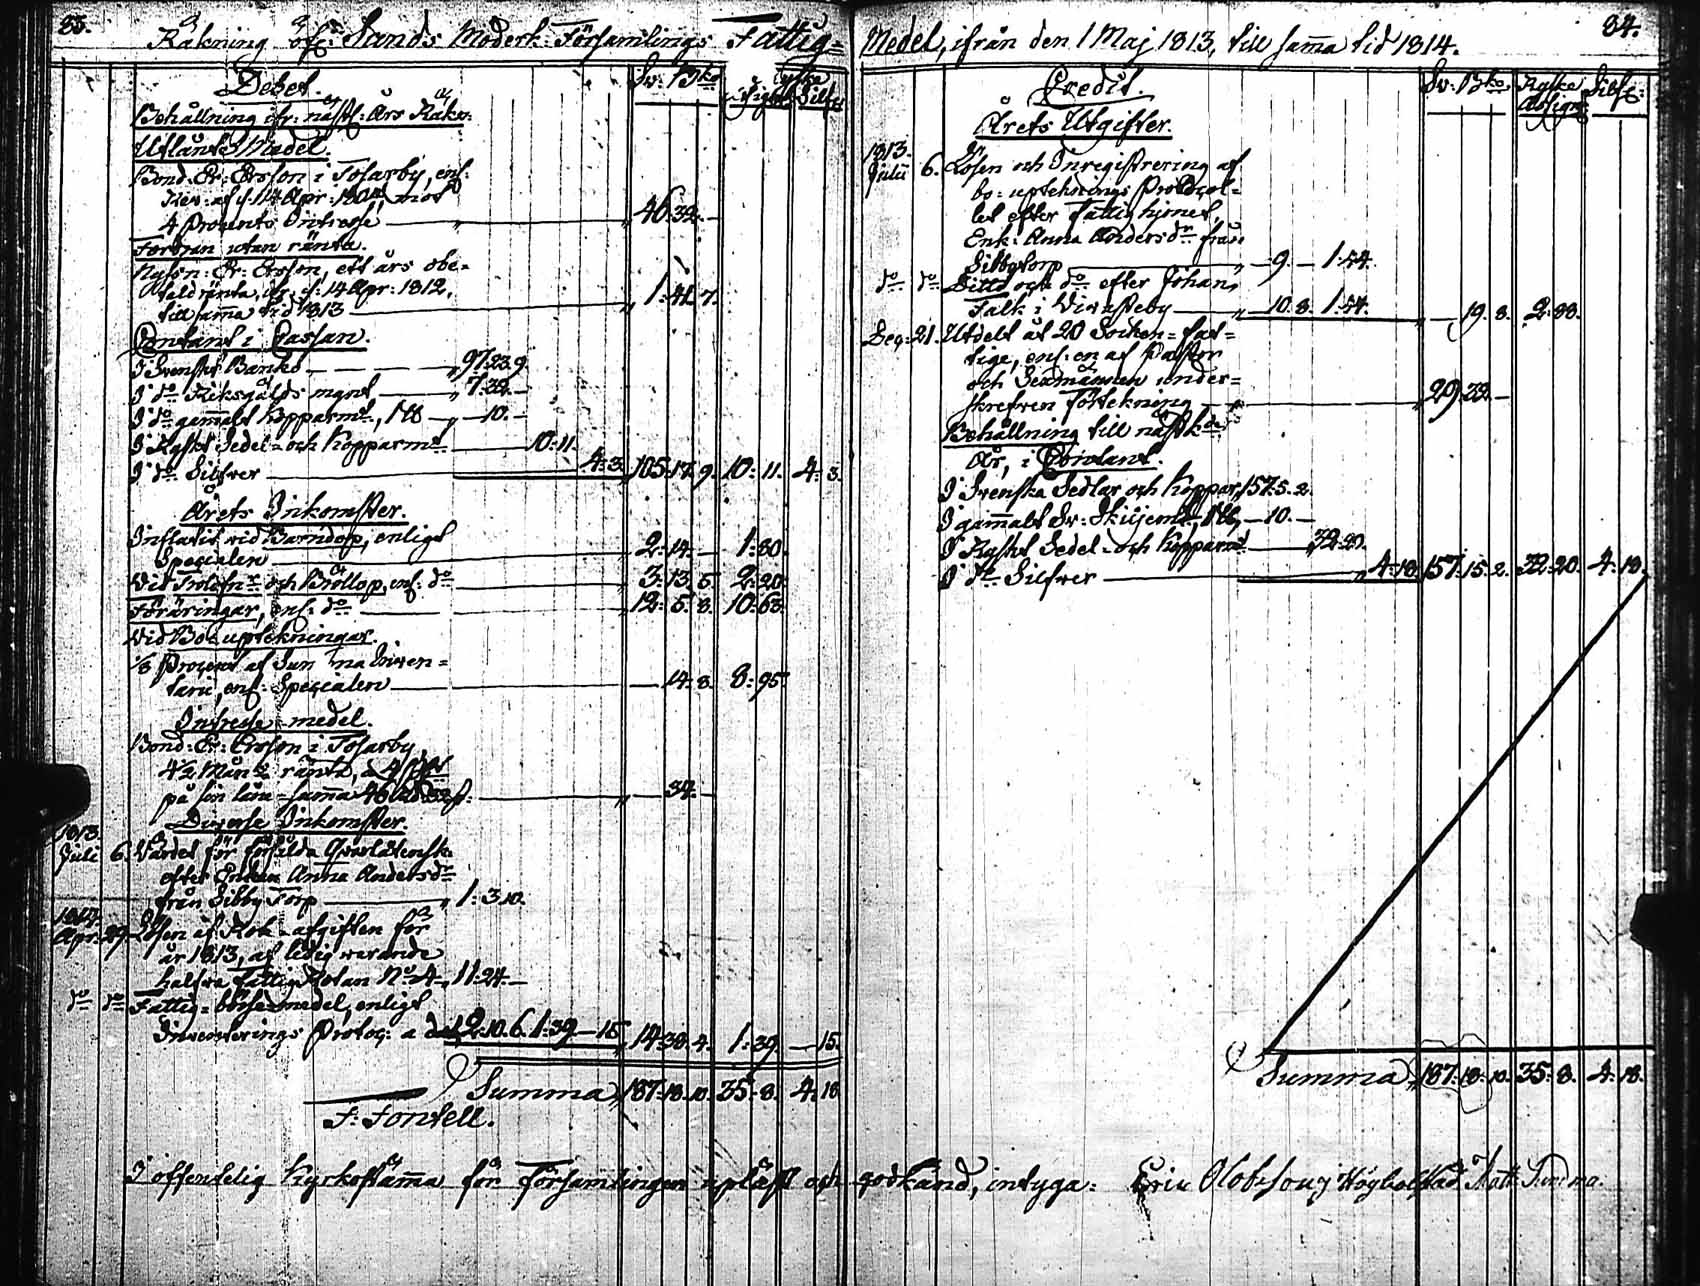 83.
Räkning öfr: Sands Moderk: Församlings Fattig=
Debet.
Sv: Bko
Ryske
Assigne Silfr
Behållning ifr: nästl: Års Räkn:
Utlånte Medel.
Bond: Er: Ersson i Tosarby, enl:
Rev: af d: 14 Apr: 180 , mot
4 Procents Intresse — 46.32.—
Fordran utan ränta.
Er: Ersson, ett års obe=
tald ränta, ifr: d: 14 Apr: 1812,
till samma tid 1813 — 1:41.7.
Contant i Cassan.
I Svenskt Banko — 97.23.9
I do Riksgälds mynt — 7:32.—
I do gammalt Kopparmt, 1 — 10.—
I Ryskt Sedel- och Kopparmt — 10:11.
I do Silfver — 4:3. 105.17.9. 10:11. 4:3.
Årets Inkomster.
Influtit vid Barndop, enligt
Specialen — 2:14.— 1:80.
Vid Trolofn: och Bröllop, enl: do — 3.13.5. 2:20.
Föräringar, enl: do — 12:5.8. 10:63.
Vid Bo-uptekningar.
1/8 Procent af Summa Inven=
tarii, enl: Specialen — 14.8. 8:95.
Intresse-medel.
Bond: Er: Ersson i Tosarby,
4½ Mån: ränta, à 4 pct
på sin lån-summa 46 Rd 32 s: — 34.—
Diverse Inkomster.
1813.
Juli 6. Värdet för försålda Qvarlåtensk:
efter Enkan Anna Andersdr
från Sibby Torp — 1:3.10.
1814.
Apr: 29. Lösen af Rok-afgiften för
år 1813, af ledig varande
halfva Fattig Rotan No 4, 11:24.—
do do Fattig-börse-medel, enligt
Inventerings Protoc: a dato 2:10.6. 1:39.—15. 14.38.4. 1:39. —15.
Summa 187:18.10. 35:8. 4:18
F: Fontell.
84.
Medel, ifrån den 1 Maj 1813, till samma tid 1814.
Credit.
Sv: Bko Ryske Assign: Silfr:
Årets Utgifter.
1813.
Julii 6. Lösen och Inregistrering af
bo-upteknings Protocol=
let efter Fattighjonet,
Enk: Anna Andersdr från
Sibbytorp — 9.— 1:44.
do do Ditto och do efter Johan
Falk i Västeby — 10.8. 1:44. —19.8. 2:88.
Dec: 21. Utdelt åt 20 Socken-fat=
tige, enl: en af Pastor
och Sexmännen under=
skrefven Förtekning — 29.32.—
Behållning till nästk:de
År, i Contant.
I Svenska Sedlar och Koppar, 157.5.2.
I gammalt Sv: Skiljemt, 1 —10.—
I Ryskt Sedel- och Kopparmt — 32:20.
I do Silfver — 4:18. 157:15.2. 32:20. 4:18.
Summa 187:18.10. 35:8. 4:18.
I offentelig Kyrkostämma för Församlingen upläst och godkänd, intyga: Eric Olofsson